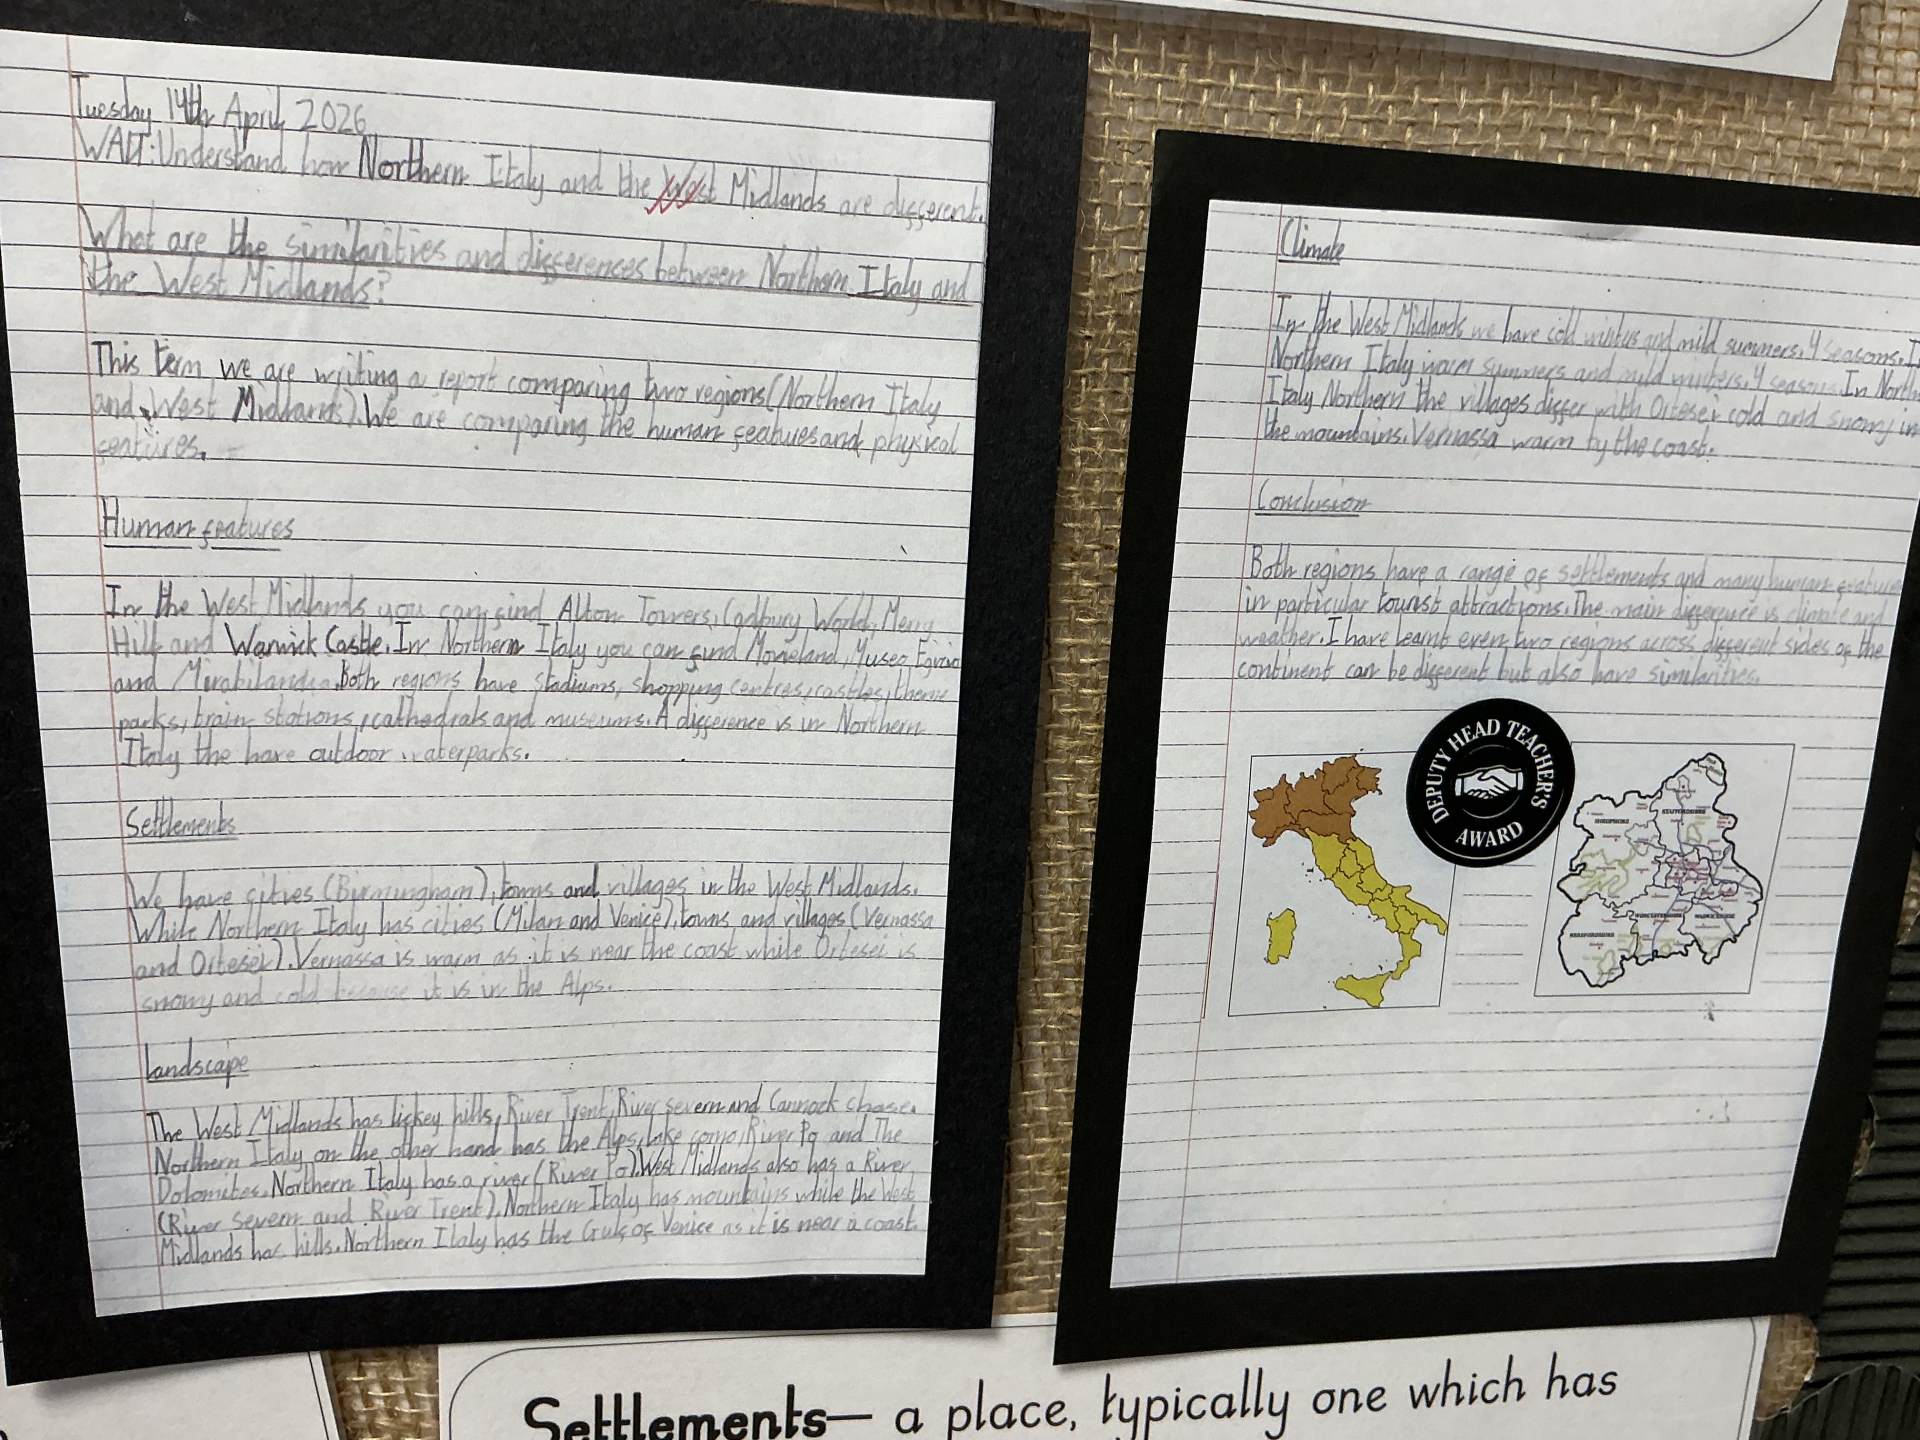 Tuesday 14th April 2026
WALT: Understand how Northern Italy and the West Midlands are different.
What are the similarities and differences between Northern Italy and
the West Midlands?
This term, we are writing a report comparing two regions (Northern Italy
and West Midlands). We are comparing the human features and physical
features.
Human features
In the West Midlands you can find Alton Towers, Cadbury World, Merry
Hill and Warwick Castle. In Northern Italy you can find Movieland, Museo
and Mirabilandia. Both regions have stadiums, shopping centres, castles, theme
parks, train stations, cathedrals and museums. A difference is in Northern
Italy the have outdoor waterparks.
Settlements
We have cities (Birmingham), towns and villages in the West Midlands.
While Northern Italy has cities (Milan and Venice), towns and villages (Vernassa
and Ortesei). Vernassa is warm as it is near the coast while Ortesei is
snowy and cold because it is in the Alps.
Landscape
The West Midlands has lickey hills, River Trent, River Severn and Cannock chase.
Northern Italy on the other hand has the Alps, Lake como, River Po and The
Dolomites. Northern Italy has a river (River Po). West Midlands also has a River
(River Severn and River Trent). Northern Italy has mountains while the West
Midlands has hills. Northern Italy has the Gulf of Venice as it is near a coast.
Climate
In the West Midlands we have cold winters and mild summers. 4 seasons. In
Northern Italy warm summers and mild winters. 4 seasons. In North
Italy Northern the villages differ with Ortesei cold and snowy in
the mountains. Vernassa warm by the coast.
Conclusion
Both regions have a range of settlements and many human feature
in particular tourist attractions. The main difference is climate and
weather. I have learnt even two regions across different sides of the
continent can be different but also have similarities.
DEPUTY HEAD TEACHER'S
AWARD
Settlements— a place, typically one which has